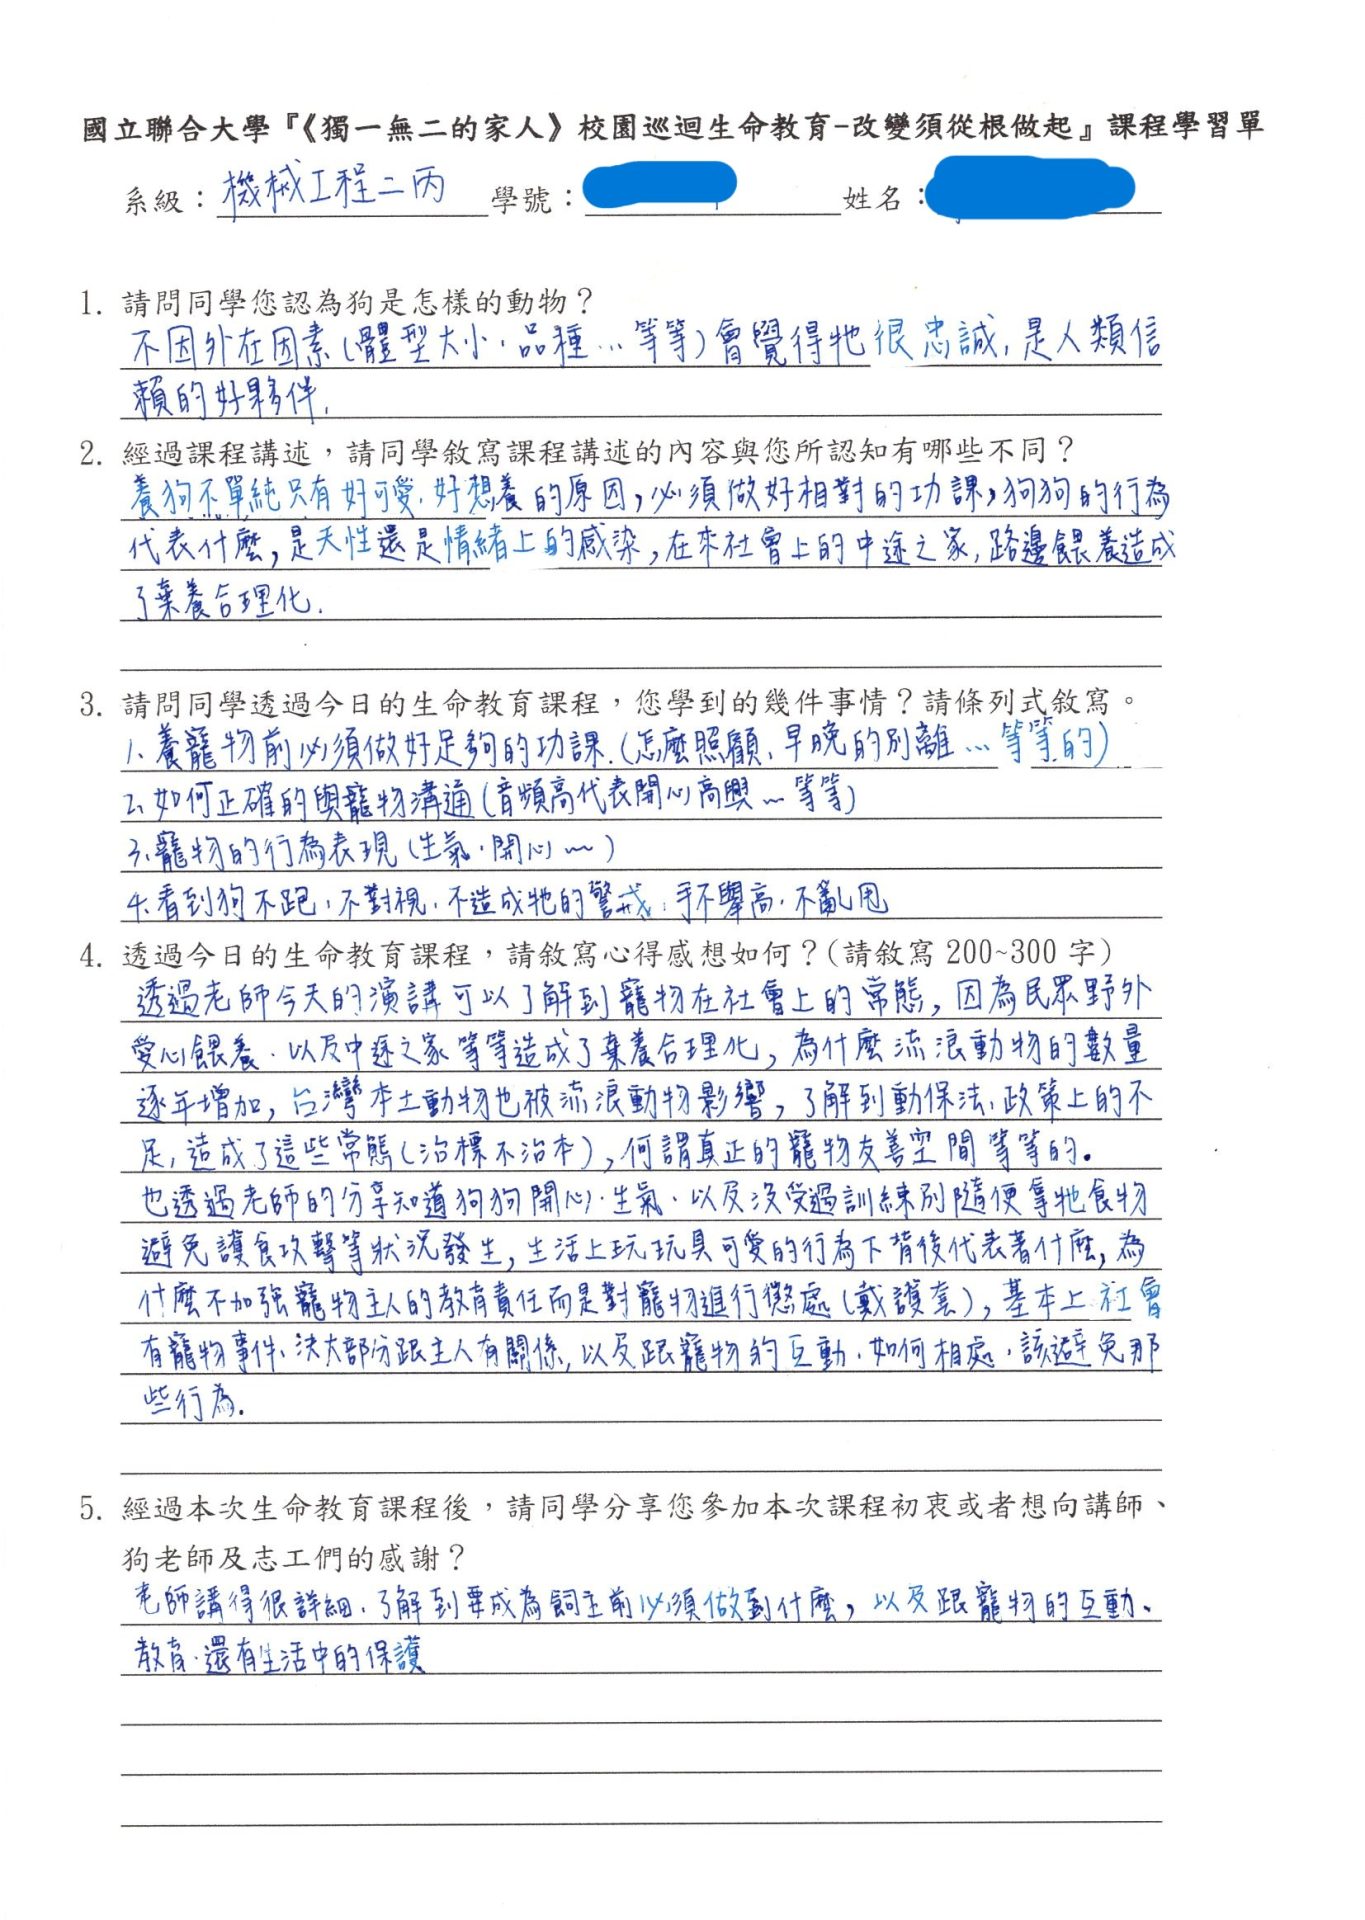 國立聯合大學『《獨一無二的家人》校園巡迴生命教育-改變須從根做起』課程學習單
系級：機械工程二丙 學號： 姓名：
1. 請問同學您認為狗是怎樣的動物？
不因外在因素(體型大小、品種…等等)會覺得牠很忠誠,是人類信
賴的好夥伴.
2. 經過課程講述，請同學敘寫課程講述的內容與您所認知有哪些不同？
養狗不單純只有好可愛、好想養的原因，必須做好相對的功課，狗狗的行為
代表什麼，是天性還是情緒上的感染，在來社會上的中途之家,路邊餵養造成
了棄養合理化.
3. 請問同學透過今日的生命教育課程，您學到的幾件事情？請條列式敘寫。
1、養寵物前必須做好足夠的功課.(怎麼照顧、早晚的別離…等等的)
2、如何正確的與寵物溝通(音頻高代表開心高興…等等)
3、寵物的行為表現(生氣、開心…)
4、看到狗不跑、不對視、不造成牠的警戒、手不舉高、不亂甩
4. 透過今日的生命教育課程，請敘寫心得感想如何？(請敘寫 200~300 字)
透過老師今天的演講可以了解到寵物在社會上的常態，因為民眾野外
愛心餵養、以及中途之家等等造成了棄養合理化，為什麼流浪動物的數量
逐年增加，台灣本土動物也被流浪動物影響，了解到動保法、政策上的不
足,造成了這些常態(治標不治本)，何謂真正的寵物友善空間等等的。
也透過老師的分享知道狗狗開心、生氣、以及沒受過訓練別隨便拿牠食物
避免護食攻擊等狀況發生，生活上玩玩具可愛的行為下背後代表著什麼，為
什麼不加強寵物主人的教育責任而是對寵物進行懲處(戴護套)，基本上社會
有寵物事件、決大部分跟主人有關係,以及跟寵物的互動、如何相處、該避免那
些行為.
5. 經過本次生命教育課程後，請同學分享您參加本次課程初衷或者想向講師、
狗老師及志工們的感謝？
老師講得很詳細、了解到要成為飼主前必須做到什麼，以及跟寵物的互動、
教育、還有生活中的保護